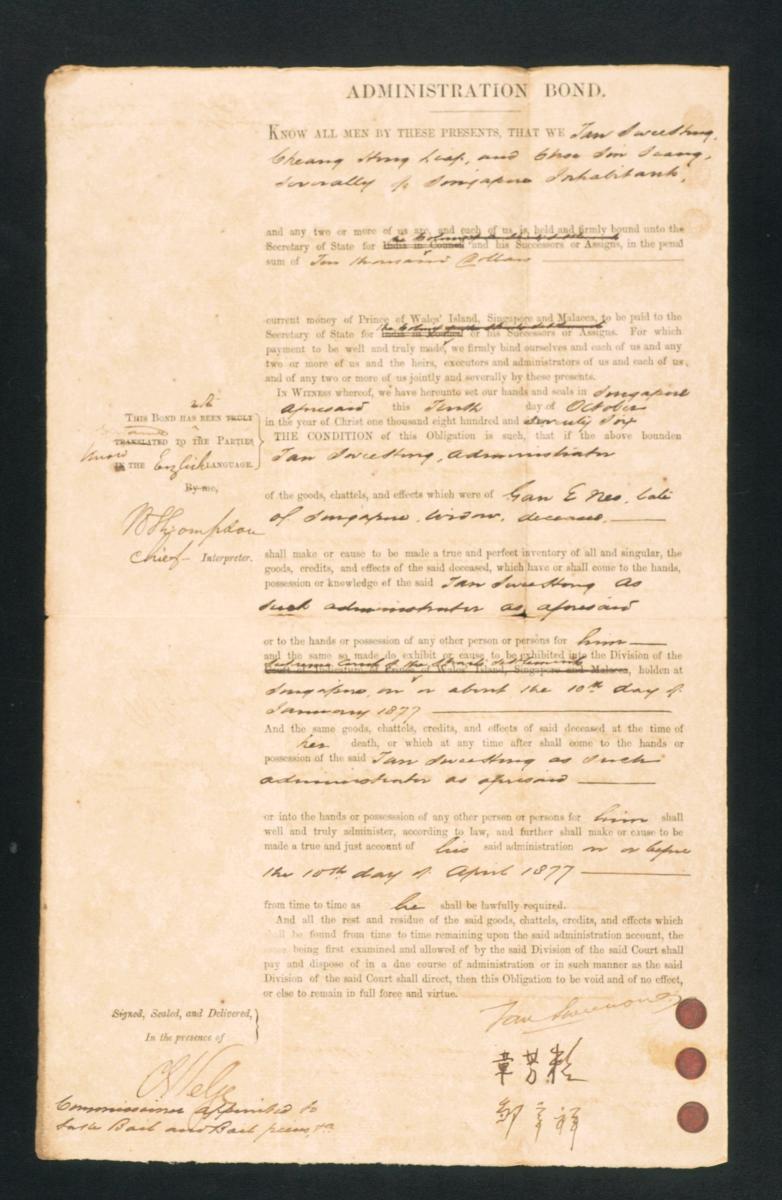 ADMINISTRATION BOND.
KNOW ALL MEN BY THESE PRESENTS, THAT WE Tan Swee Hong,
Cheang Hong Leap, and Choa Sin Seang,
severally of Singapore Inhabitants,
and any two or more of us are, and each of us is, held and firmly bound unto the
Secretary of State for India in Council and his Successors or Assigns, in the penal
sum of Ten thousand Dollars
current money of Prince of Wales' Island, Singapore and Malacca, to be paid to the
the Colony of the Straits Settlements
Secretary of State for India in Council or his Successors or Assigns. For which
payment to be well and truly made, we firmly bind ourselves and each of us and any
two or more of us and the heirs, executors and administrators of us and each of us,
and of any two or more of us jointly and severally by these presents.
IN WITNESS whereof, we have hereunto set our hands and seals in Singapore
aforesaid this Tenth day of October
in the year of Christ one thousand eight hundred and seventy Six
THE CONDITION of this Obligation is such, that if the above bounden
Tan Swee Hong, administrator
THIS BOND HAS BEEN TRULY
TRANSLATED TO THE PARTIES
IN THE English LANGUAGE.
By me,
Chief Interpreter.
of the goods, chattels, and effects which were of Gan E Neo, late
of Singapore, widow, deceased,
shall make or cause to be made a true and perfect inventory of all and singular, the
goods, credits, and effects of the said deceased, which have or shall come to the hands,
possession or knowledge of the said Tan Swee Hong as
such administrator as aforesaid
or to the hands or possession of any other person or persons for him
and the same so made do exhibit or cause to be exhibited into the Division of the
Supreme Court of the Straits Settlements
Court of Judicature of Prince of Wales' Island, Singapore and Malacca, holden at
Singapore, on or about the 10th day of
January 1877
And the same goods, chattels, credits, and effects of said deceased at the time of
her death, or which at any time after shall come to the hands or
possession of the said Tan Swee Hong as such
administrator as aforesaid
or into the hands or possesssion of any other person or persons for him shall
well and truly administer, according to law, and further shall make or cause to be
made a true and just account of his said administration on or before
the 10th day of April 1877
from time to time as he shall be lawfully required.
And all the rest and residue of the said goods, chattels, credits, and effects which
shall be found from time to time remaining upon the said administration account, the
same being first examined and allowed of by the said Division of the said Court shall
pay and dispose of in a due course of administration or in such manner as the said
Division of the said Court shall direct, then this Obligation to be void and of no effect,
or else to remain in full force and virtue.
Signed, Sealed, and Delivered,
In the presence of
Commissioner appointed to
take Bail and Bail
章芳